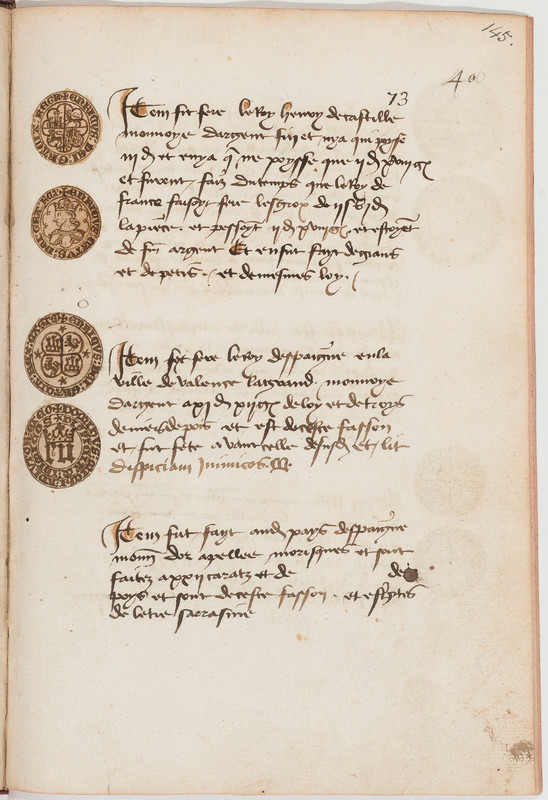 145.
40
73
Item fit fere le Roy henry de castille
monnoye dargent fin et nya qui poyse
iii d et en ya q ne poysse que ii d xviii g
et furent faiz du temps que le Roy de
france faisoyt fere les gros de ii s vi d
la piece et pessoyt ii d xviii g et estoyēt
de fin argent Et en fut fayt de grans
et de petis et de mesmes loy
Item fyt fere le roy despaigne en la
ville de valence la grand monnoye
dargent a xi d xii g de loy et de troys
deniers de pois et est de ceste fasson
et fut fete avant celle dessus et lit
dispiciam inimicos
Item fut fayt audit pays despaigne
monn dor apellee morisques et sont
faitez a xxii caratz et de de
poys et sont de ceste fasson et escriptes
de letre sarrasine